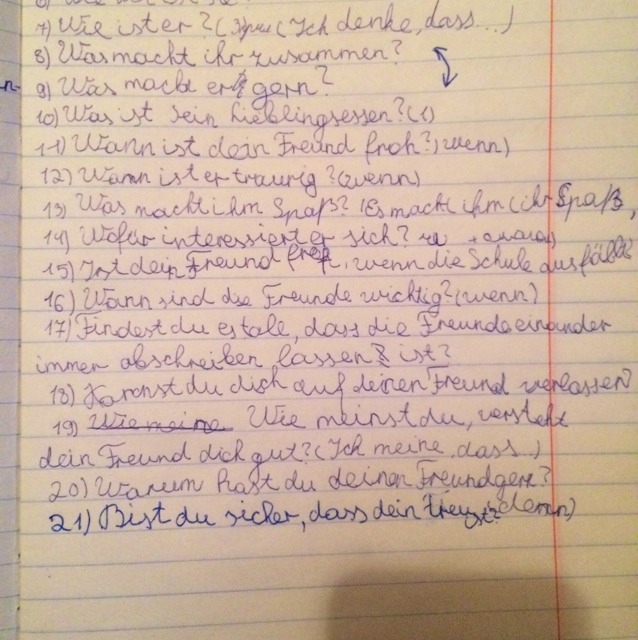 7) Wie ist er? (Ich denke, dass...)
8) Was macht ihr zusammen?
9) Was macht er gern?
10) Was ist sein Lieblingsessen? (1)
11) Wann ist dein Freund froh? (wenn)
12) Wann ist er traurig? (wenn)
13) Was macht ihm Spaß? (Es macht ihm (ihr Spaß,
14) Wofür interessiert er sich?
15) Ist dein Freund froh, wenn die Schule ausfällt
16) Wann sind die Freunde wichtig? (wenn)
17) Findest du es tale, dass die Freunde einander
immer abschreiben lassen ist?
18) Kannst du dich auf deinen Freund verlassen?
19) Wie meine Wie meinst du, versteht
dein Freund dich gut? (Ich meine, dass...)
20) Warum hast du deinen Freund gern?
21) Bist du sicher, dass dein treu ist? denn)